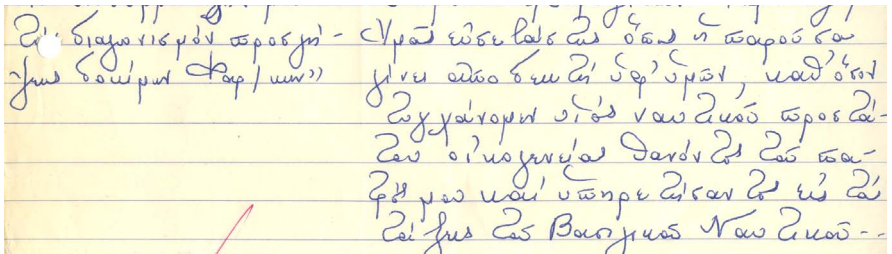 τόν διαγωνισμόν προσλή-
ψεως δοκίμων Φαρ/κων»
Ὑμᾶς εὐσεβάστως ὅπως ἡ παροῦσα
γίνει ἀποδεκτή ὑφ' ὑμῶν, καθ' ὅσον
τυγχάνομεν υἱός ναυτικοῦ προστά-
του οἰκογενείας θανόντος τοῦ πα-
τρός μου καί ὑπηρετήσαντος εἰς τάς
τάξεις τοῦ Βασιλικοῦ Ναυτικοῦ--